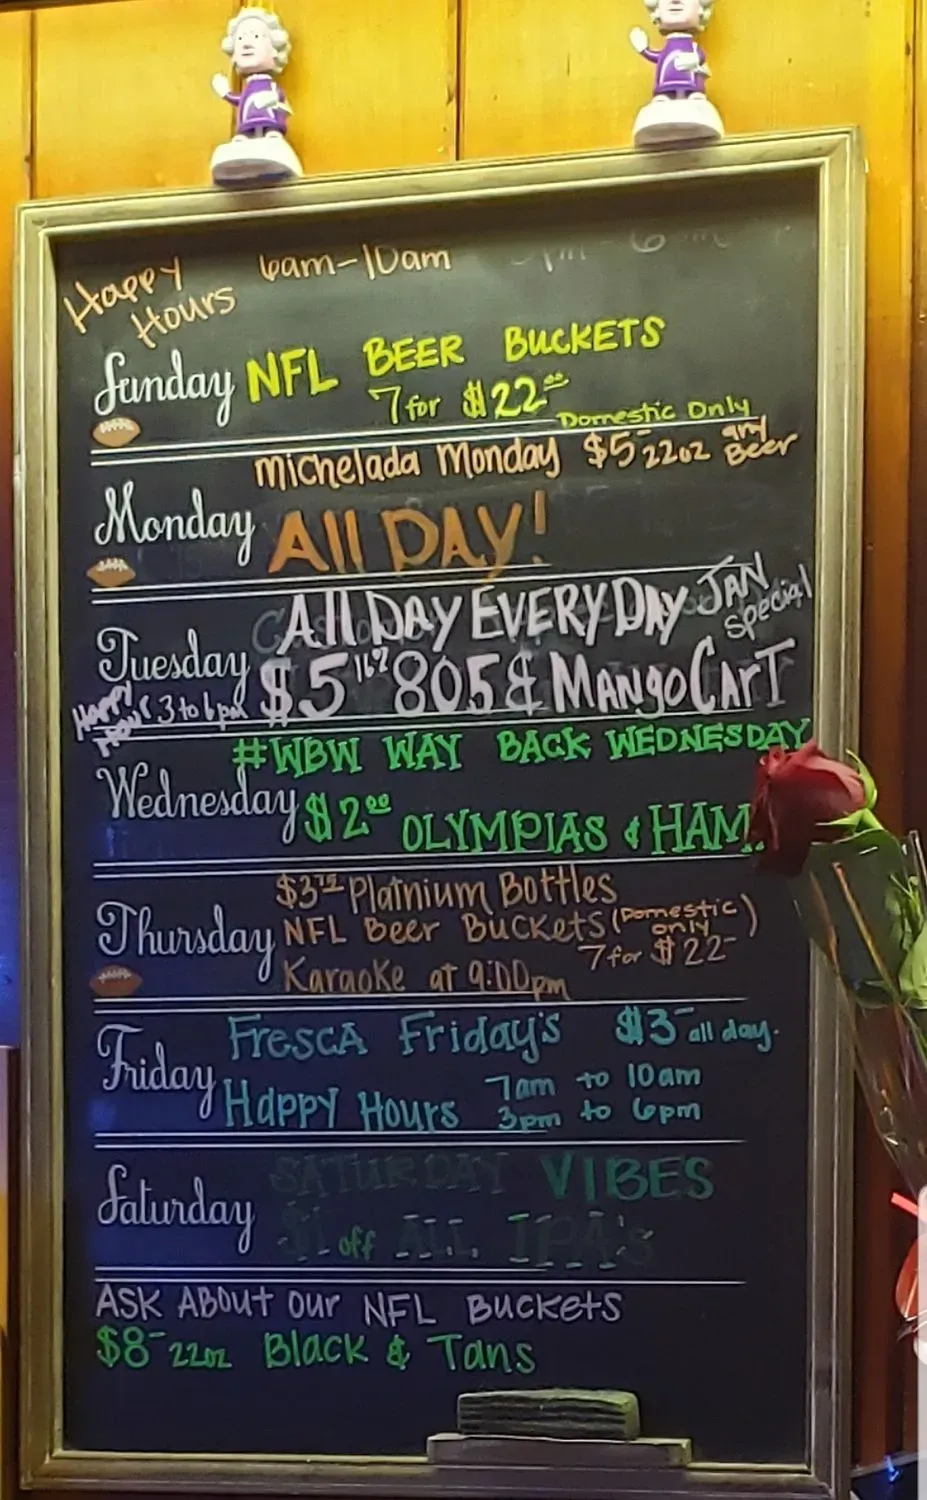 Happy Hours 6am-10am
Sunday NFL BEER BUCKETS
7 for $22.00
Domestic Only
Michelada Monday $5- 22oz any Beer
Monday All DAY!
All DAY EVERY DAY JAN special
Tuesday $5 16oz 805 & MANGO CART
Happy Hour 3 to 6pm
#WBW WAY BACK WEDNESDAY
Wednesday $2.00 OLYMPIAS & HAM
$3.75 Platnium Bottles
Thursday NFL Beer Buckets (Domestic only)
7 for $22-
Karaoke at 9:00pm
Fresca Friday's $3- all day.
Friday
Happy Hours 7am to 10am
3pm to 6pm
SATURDAY VIBES
Saturday
$1 off ALL IPA's
ASK About our NFL Buckets
$8- 22oz Black & Tans